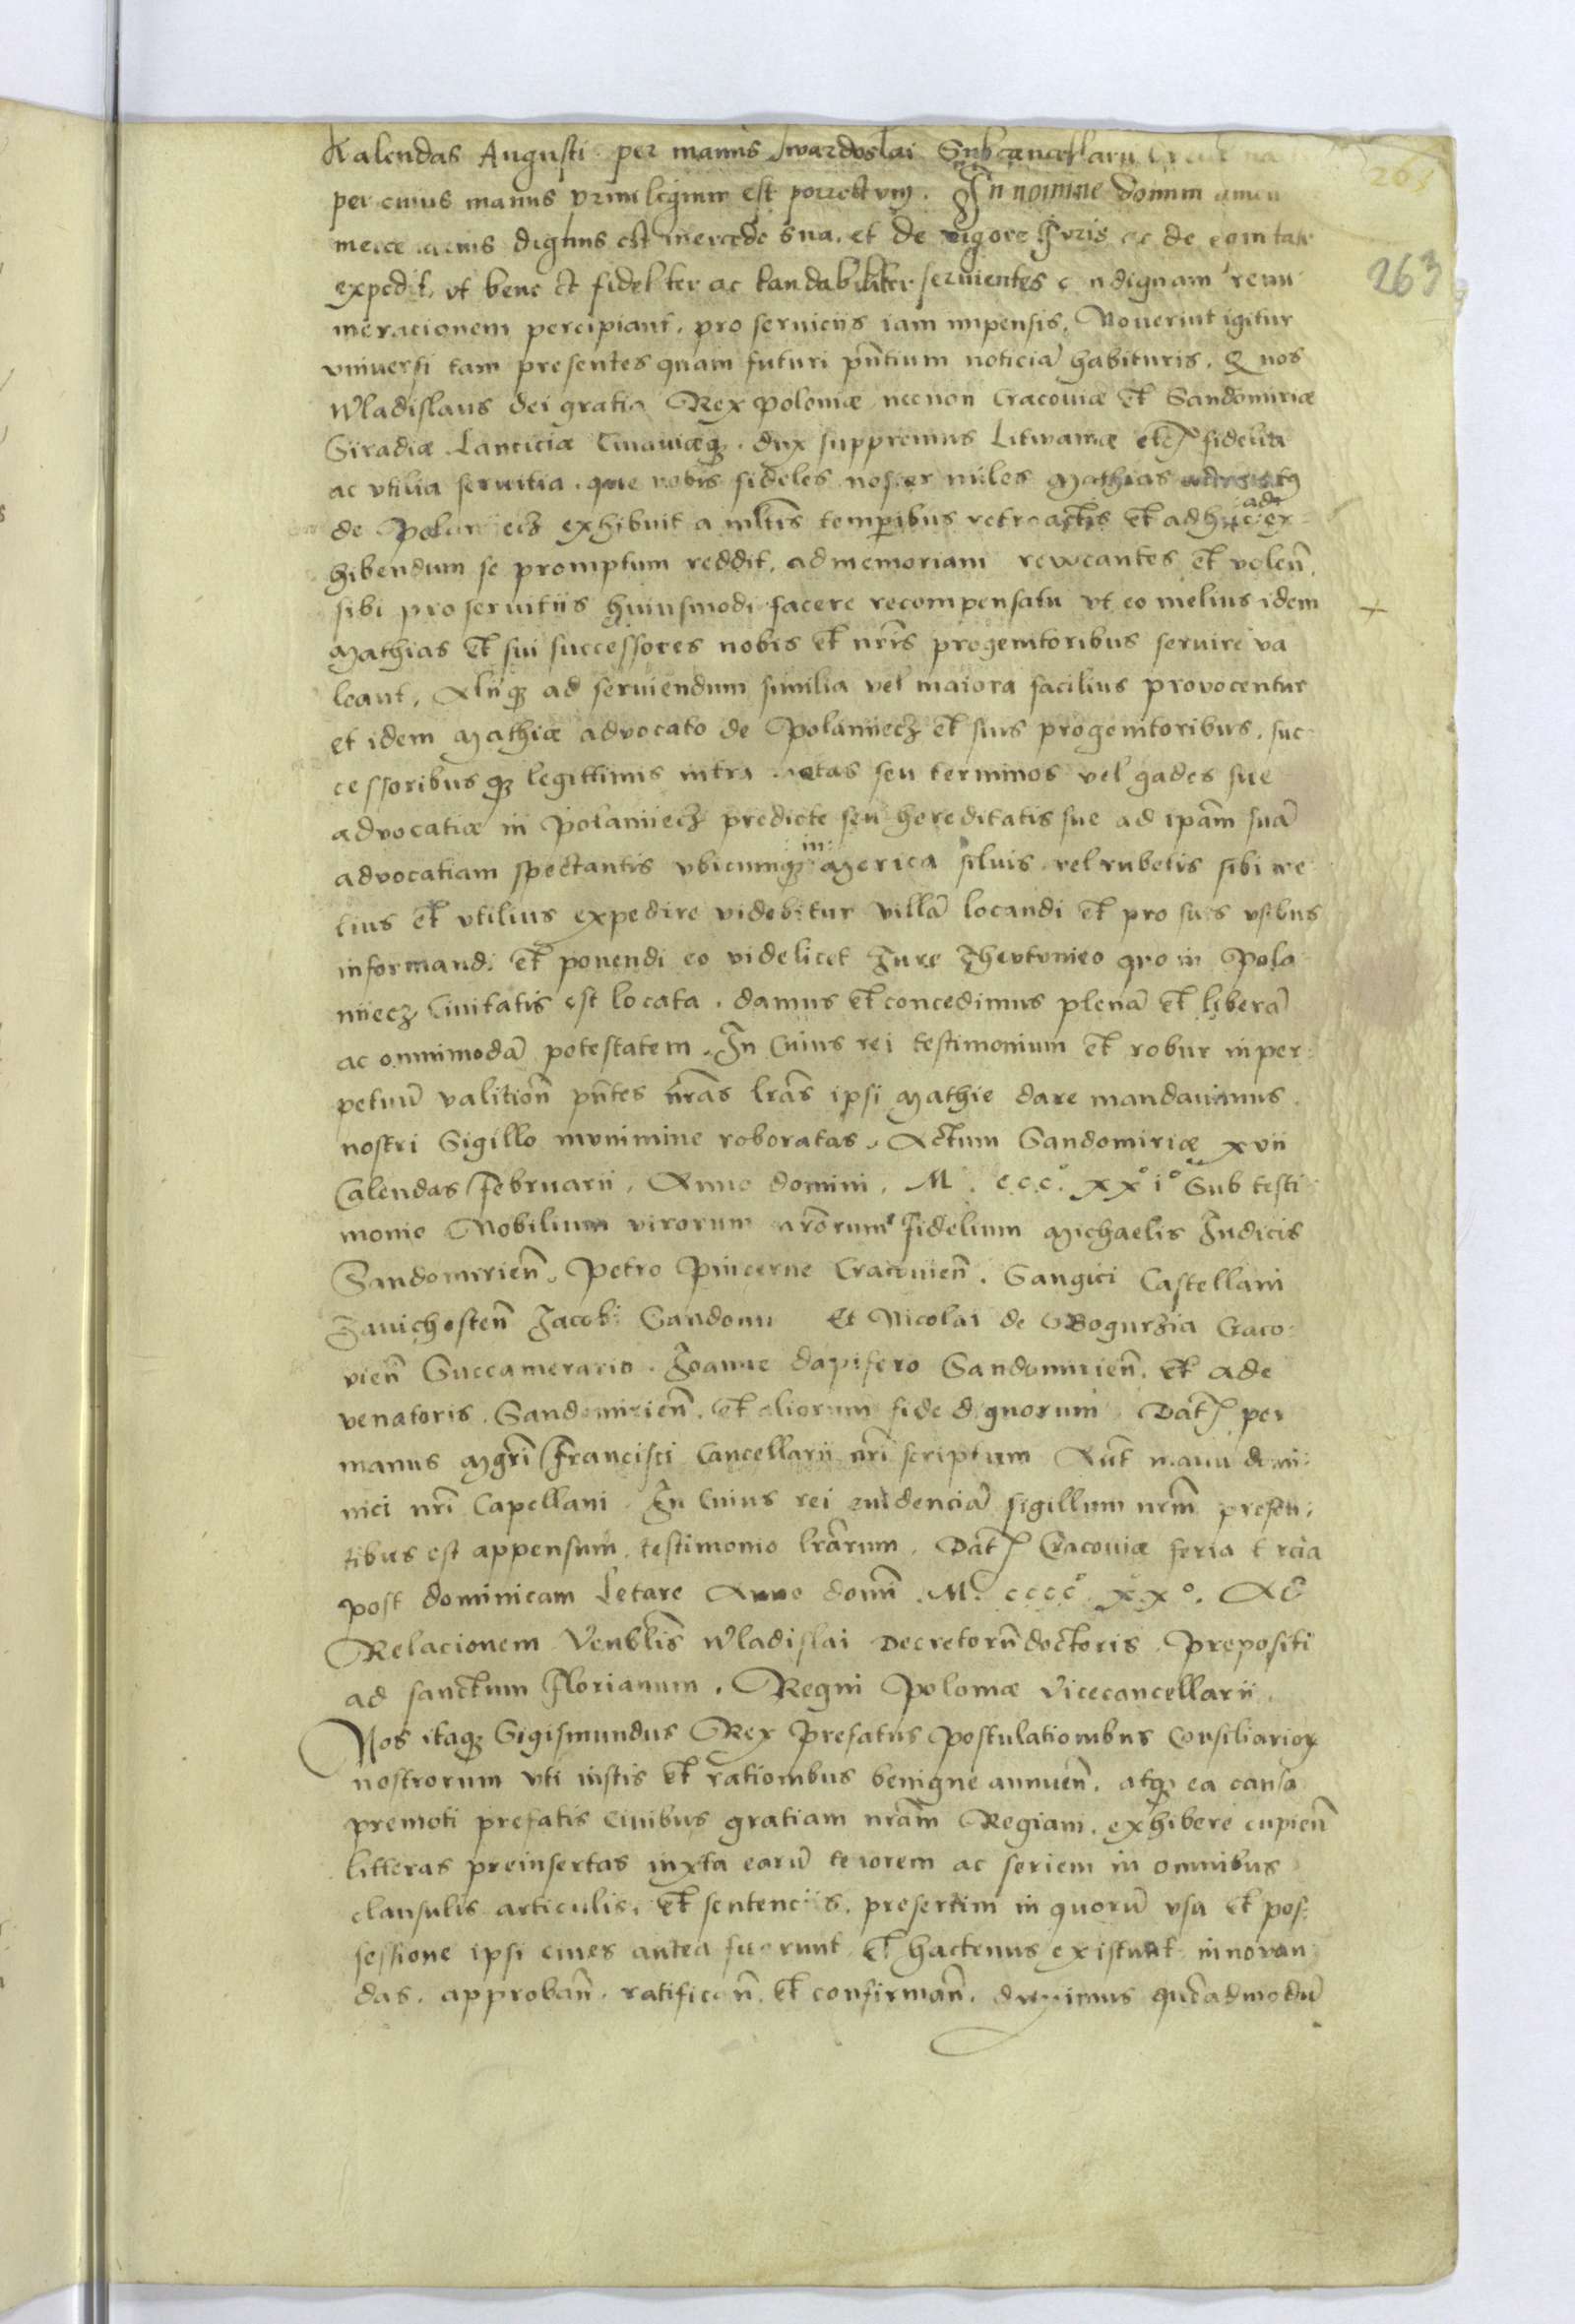 263
263
Kalendas Augusti per manus Swardoslai Subcancellarii
per cuius manus privilegium est porrectum. In nomine domini amen
mercenarius dignus est mercede sua. et de vigore Iuris ac de comitate
expedit, vt bene et fideliter ac laudabiliter seruientes condignam remu
neracionem percipiant, pro seruiciis iam impensis. Nouerint igitur
vniuersi tam presentes quam futuri pñtium noticiā habituris. Q nos
Wladislaus dei gratia Rex Poloniæ necnon Cracouiæ et Sandomiriæ
Siradiæ Lanciciæ Cuiauiæq3. dux suppremus Litwaniæ etc fidelia
ac vtilia seruitia. que nobis fideles noster miles Mathias
de Polaniecz exhibuit a mltis temporibus retroactis et adhuc ade ex
hibendum se promptum reddit. ad memoriam revocantes et voleñ.
sibi pro seruitiis huiusmodi facere recompensatu vt eo melius idem
Mathias et sui successores nobis et nr̄is progenitoribus seruire va
leant. Aliiq3 ad seruiendum similia vel maiora facilius provocentur
et idem Mathiæ advocato de Polaniecz et suis progenitoribus. suc
cessoribusq3 legittimis intra metas seu terminos vel gades sue
advocatiæ in Polaniecz predicte seu hereditatis sue ad ipām suā
advocatiam spectantis vbicumq3 in Merica siluis vel rubetis sibi me
lius et vtilius expedire videbitur villā locandi et pro suis vsibus
informandi et ponendi eo videlicet Iure Thevtonico qvo in Pola
niecz Ciuitatis est locata. damus et concedimus plenā et liberā
ac omnimodā potestatem. In Cuius rei testimonium et robur in per
petuū valitioñ pñtes nrās lrās ipsi Mathie dare mandauimus.
nostri Sigillo mvnimine roboratas. Actum Sandomiriæ xvii
Calendas Februarii. Anno domini. M. c.c.c. xx° i° Sub testi
monio Nobilium virorum nrōrum Fidelium Michaelis Iudicis
Sandomirieñ. Petro Pincerne Cracouieñ. Gangici Castellani
Zauichosteñ Iacobi Sandomi Et Nicolai de Bogurzia Craco:
vieñ Succamerario. Ioanne dapifero Sandomirieñ. et ade
venatoris. Sandomirieñ. et aliorum fide dignorum. Dat per
manus Mgri Francisci Cancellarii nri scriptum Aūt manu domi:
nici nri Capellani. In Cuius rei evidenciā sigillum nrm presen:
tibus est appensum. testimonio lrārum. Dat Cracouiæ feria tercia
post dominicam Letare Anno domi. M. cccc° xx°. Ad
Relacionem Venblis Wladislai Decretorū doctoris. Prepositi
ad sanctum Florianum. Regni Poloniæ Vicecancellarii.
Nos itaq3 Sigismundus Rex Prefatus Postulationibus Consiliarior
nostrorum vti iustis et rationibus benigne annueñ. atq3 ea causa
premoti prefatis Ciuibus gratiam nrām Regiam. exhibere cupieñ
litteras preinsertas iuxta earū tenorem ac seriem in omnibus
clausulis articulis. et sentenciis. presertim in quorū vsu et pos:
sessione ipsi ciues antea fuerunt et hactenus existunt innovan
das. approbañ. ratificañ. et confirmañ. duximus quēadmodū